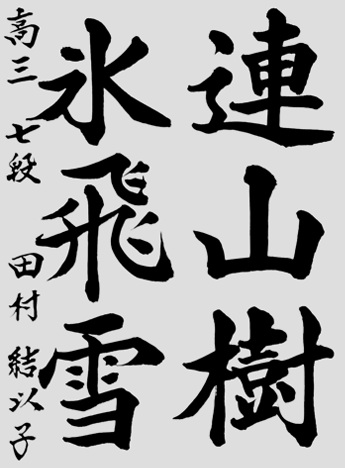 連山樹
氷飛雪
高三 七段 田村 結以子